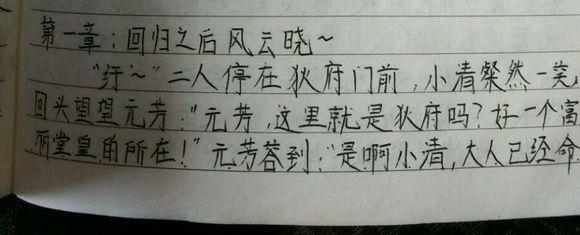 第一章：回归之后风云晓~
"纡~"二人停在狄府门前，小清粲然一笑，
回头望望元芳："元芳，这里就是狄府吗？好一个富
丽堂皇的所在！"元芳答到："是啊小清，大人已经命